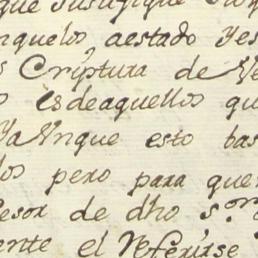 que Justifique
nquelos aestado yes
Criptura de Ve
os es deaquellos qu
YaVnque esto bas
los pero para que
esor de dho s.or
ente el Referirse